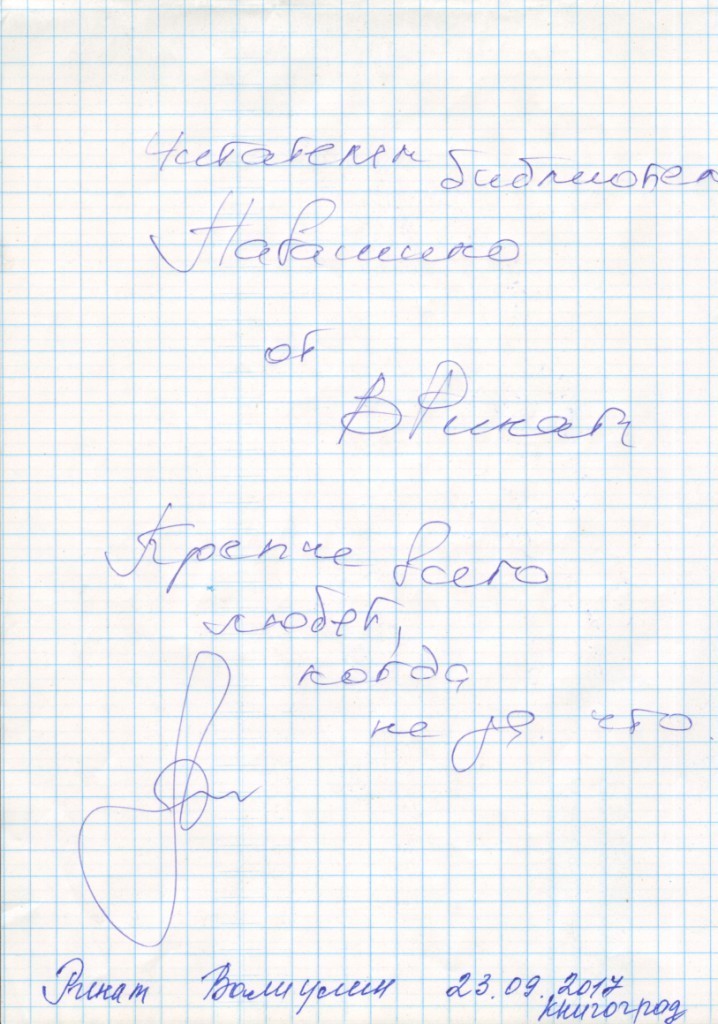 Читателям библиотек
Навашино
от
В Ринат
Крепче всего
любят,
когда
не за что.
Ринат Валиулин 23.09.2017
Книгоград